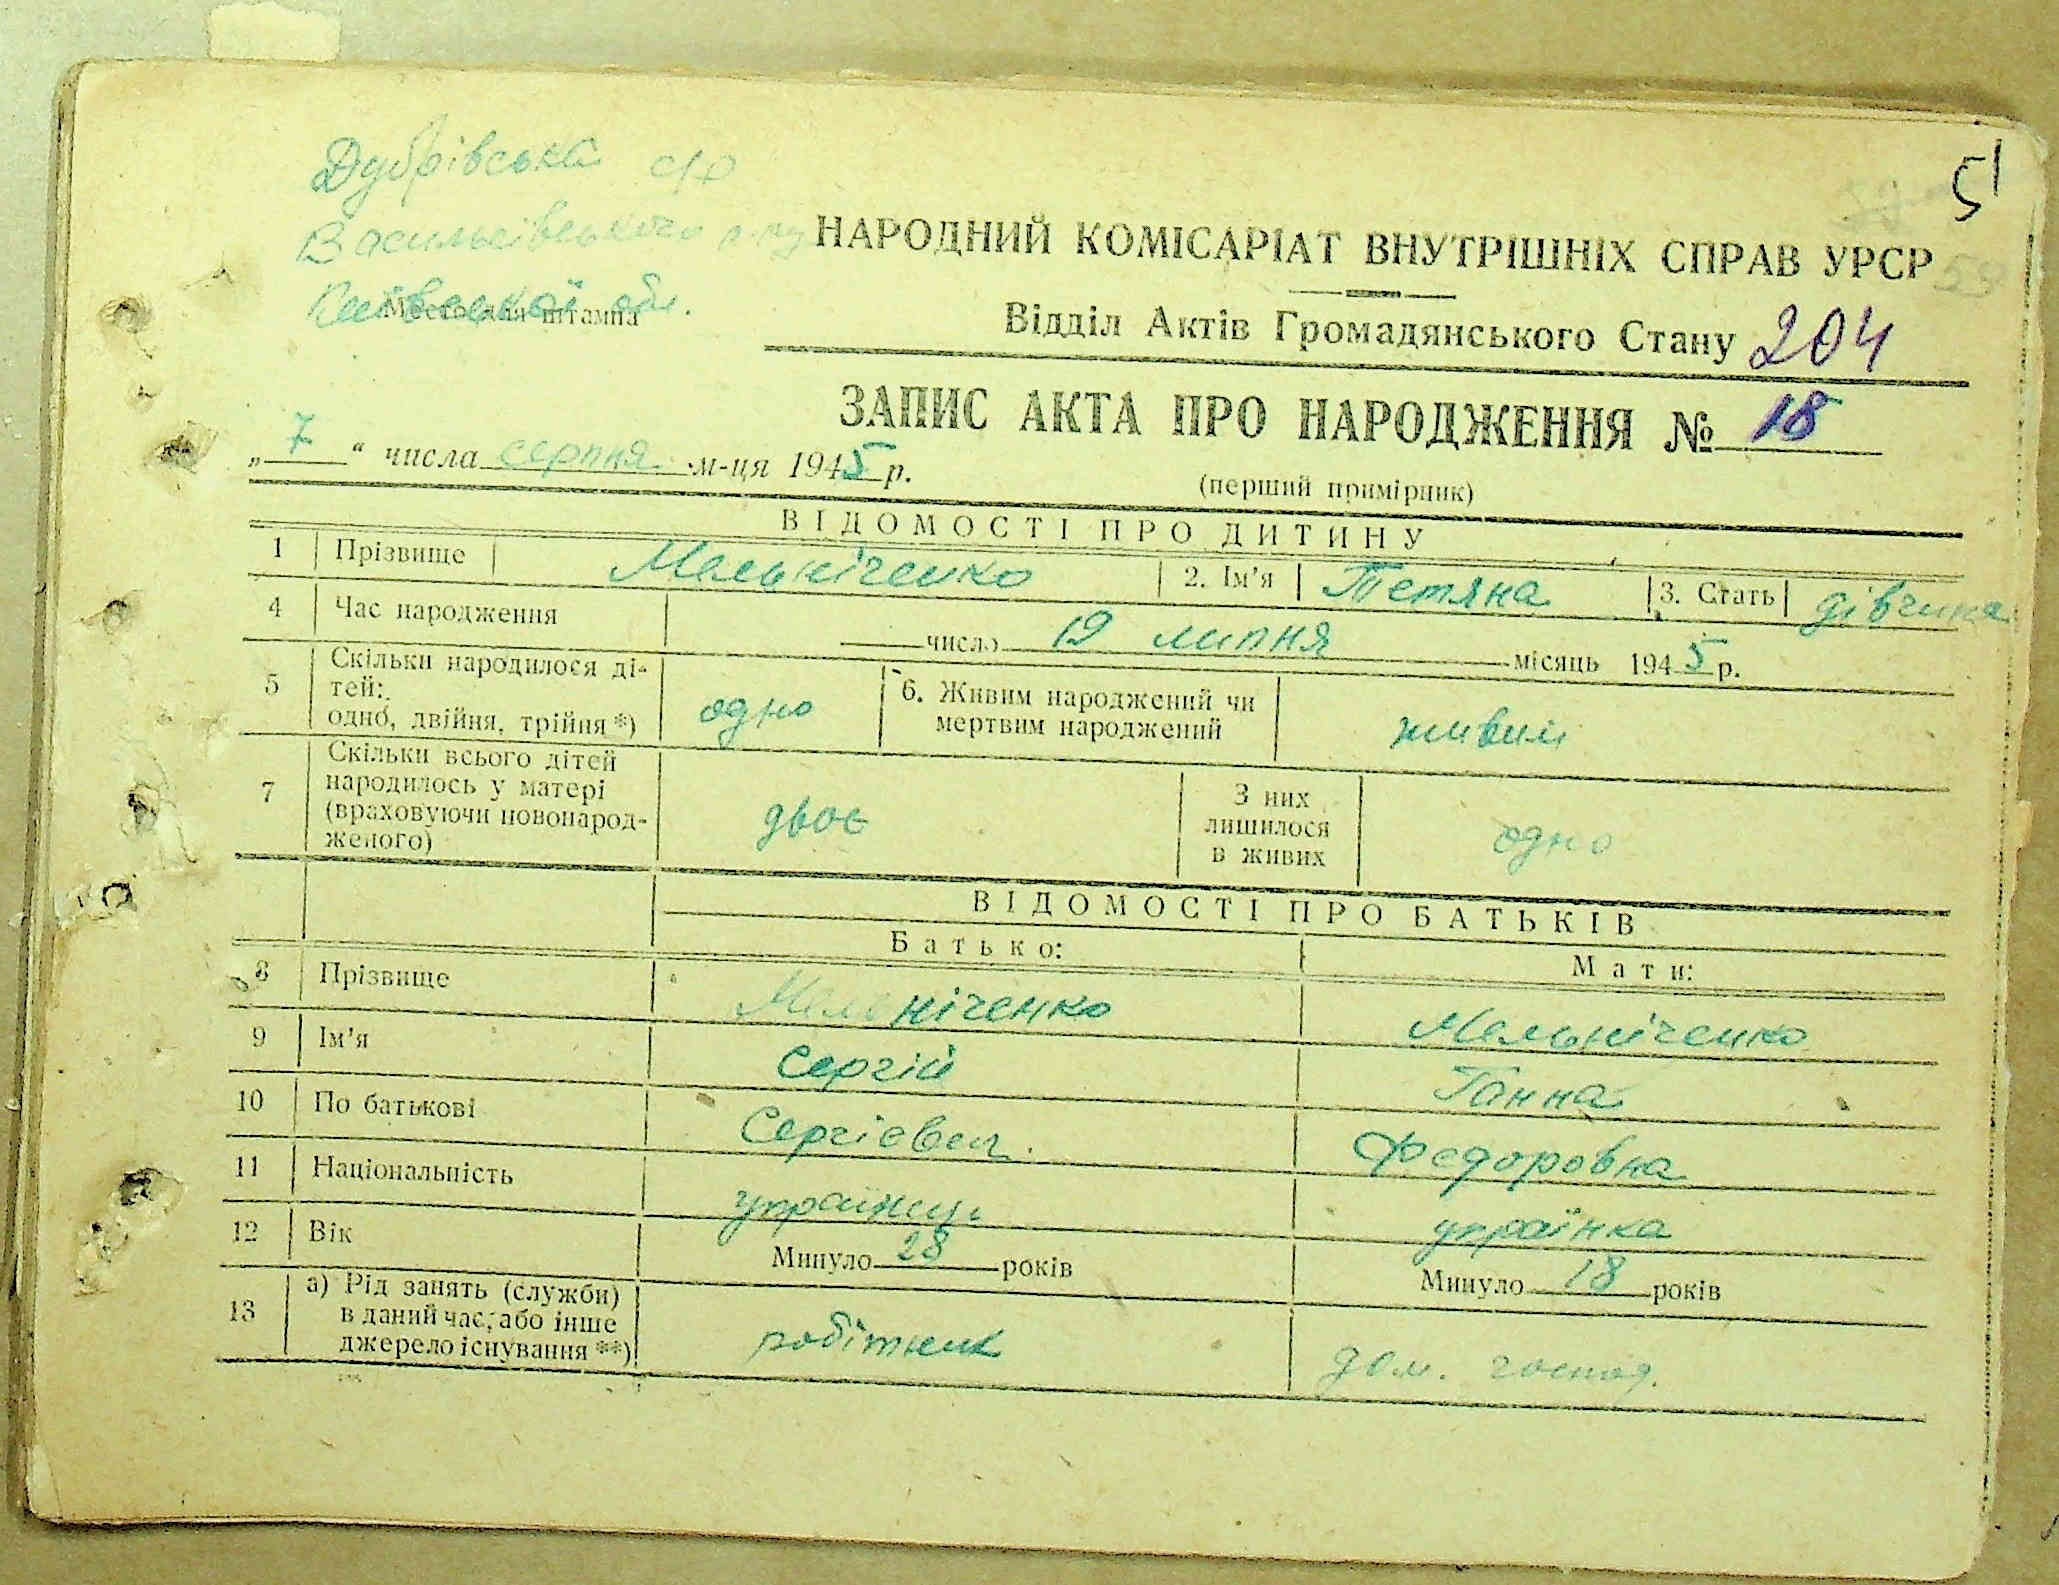 51
Дубрівська с/р
Васильківського р-ну
Київської обл.
Место для штампа
НАРОДНИЙ КОМІСАРІАТ ВНУТРІШНІХ СПРАВ УРСР
59
Відділ Актів Громадянського Стану 204
ЗАПИС АКТА ПРО НАРОДЖЕННЯ № 18
„7“ числа серпня м-ця 1945 р.
(перший примірник)
ВІДОМОСТІ ПРО ДИТИНУ
1 Прізвище Мельніченко 2. Ім'я Тетяна 3. Стать дівчина
4 Час народження число 19 липня місяць 1945 р.
5 Скільки народилося ді-
тей:
одно, двійня, трійня *) одно 6. Живим народжений чи
мертвим народжений живим
7 Скільки всього дітей
народилось у матері
(враховуючи новонарод-
женого) двоє З них
лишилося
в живих одно
ВІДОМОСТІ ПРО БАТЬКІВ
Батько: Мати:
8 Прізвище Мельніченко Мельніченко
9 Ім'я Сергій Ганна
10 По батькові Сергієвич Федоровна
11 Національність українець українка
12 Вік Минуло 28 років Минуло 18 років
13 а) Рід занять (служби)
в даний час, або інше
джерело існування **) робітник дом. господ.